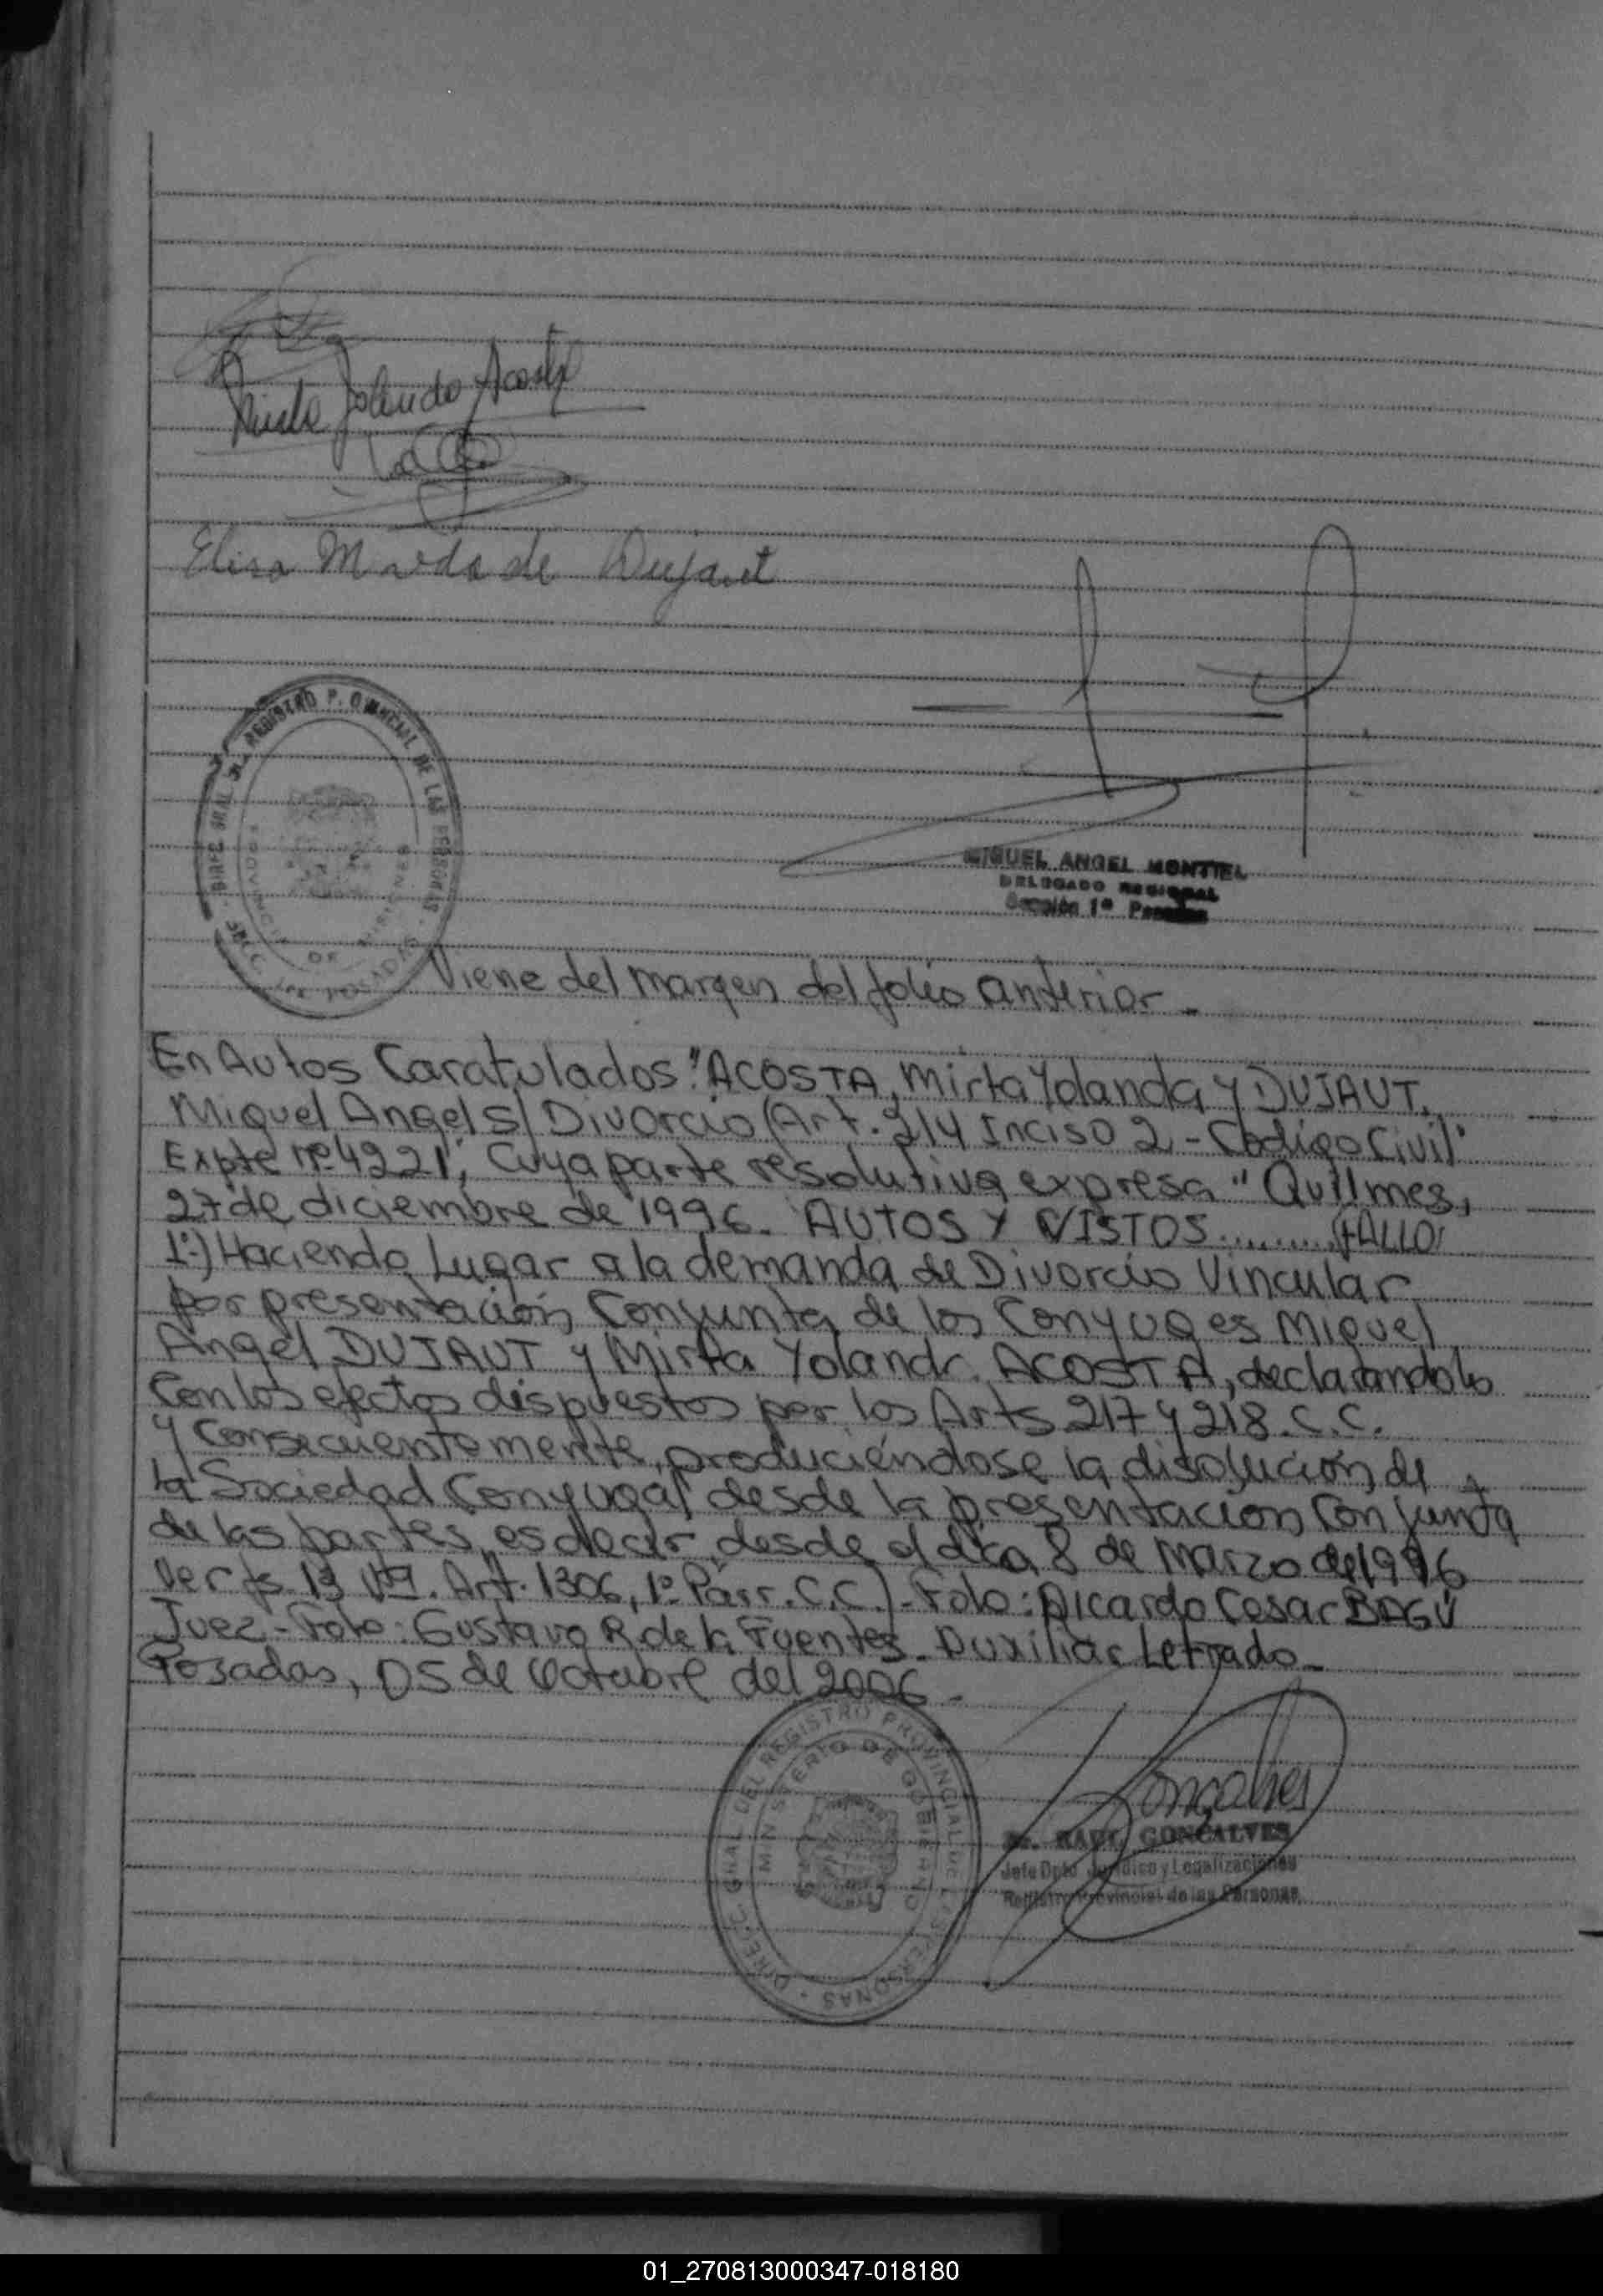 Mirta Yolanda Acosta
Elisa M de Dujaut
DIREC. GRAL. DEL REGISTRO PROVINCIAL DE LAS PERSONAS
PROVINCIA DE MISIONES
POSADAS
MIGUEL ANGEL MONTIEL
DELEGADO REGIONAL
Sección 1ª
Viene del margen del folio anterior -
En Autos Caratulados: "ACOSTA, Mirta Yolanda y DUJAUT,
Miguel Angel S/ Divorcio (Art. 214 Inciso 2 - Codigo Civil"
Expte nº 4221", Cuya parte resolutiva expresa "Quilmes,
27 de diciembre de 1996. AUTOS Y VISTOS.......... FALLO:
1º-) Haciendo Lugar a la demanda de Divorcio Vincular
por presentación Conjunta de los Conyuges Miguel
Angel DUJAUT y Mirta Yolanda ACOSTA, declarandolo
Con los efectos dispuestos por los Arts 217 y 218. C.C.
y Consecuentemente, produciéndose la disolución de
la Sociedad Conyugal desde la presentación Conjunta
de las partes, es decir, desde el día 8 de Marzo de 1996
Ver fs. 13 Vta. Art. 1306, 1º Párr. C.C.). - Fdo: Ricardo Cesar BAGÚ
Juez - Fdo: Gustavo R. de la Fuentes. Auxiliar Letrado -
Posadas, 05 de Octubre del 2006 -
DIREC. GRAL DEL REGISTRO PROVINCIAL DE LAS PERSONAS
MINISTERIO DE GOBIERNO
Goncalves
Dr. RAUL GONCALVES
Jefe Dpto Jurídico y Legalizaciones
Registro Provincial de las Personas
01_270813000347-018180